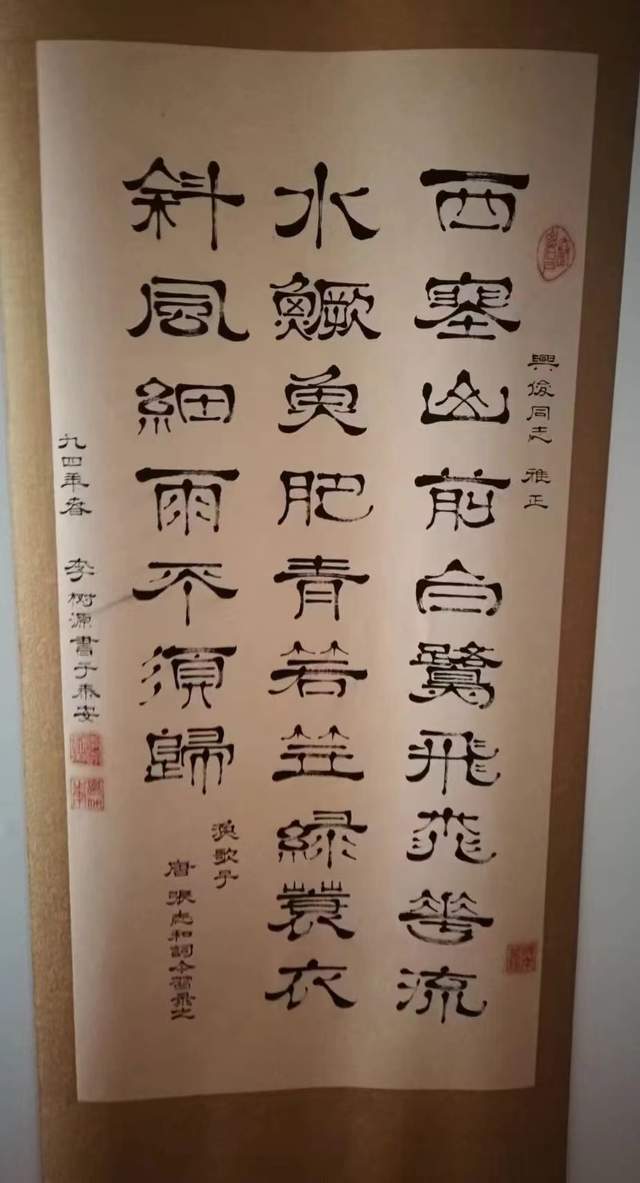 興俊同志 雅正
西塞山前白鷺飛桃華流
水鱖魚肥青箬笠緑蓑衣
斜風細雨不須歸
漁歌子
唐 張志和詞今習隸之
九四年春 李树源書于泰安